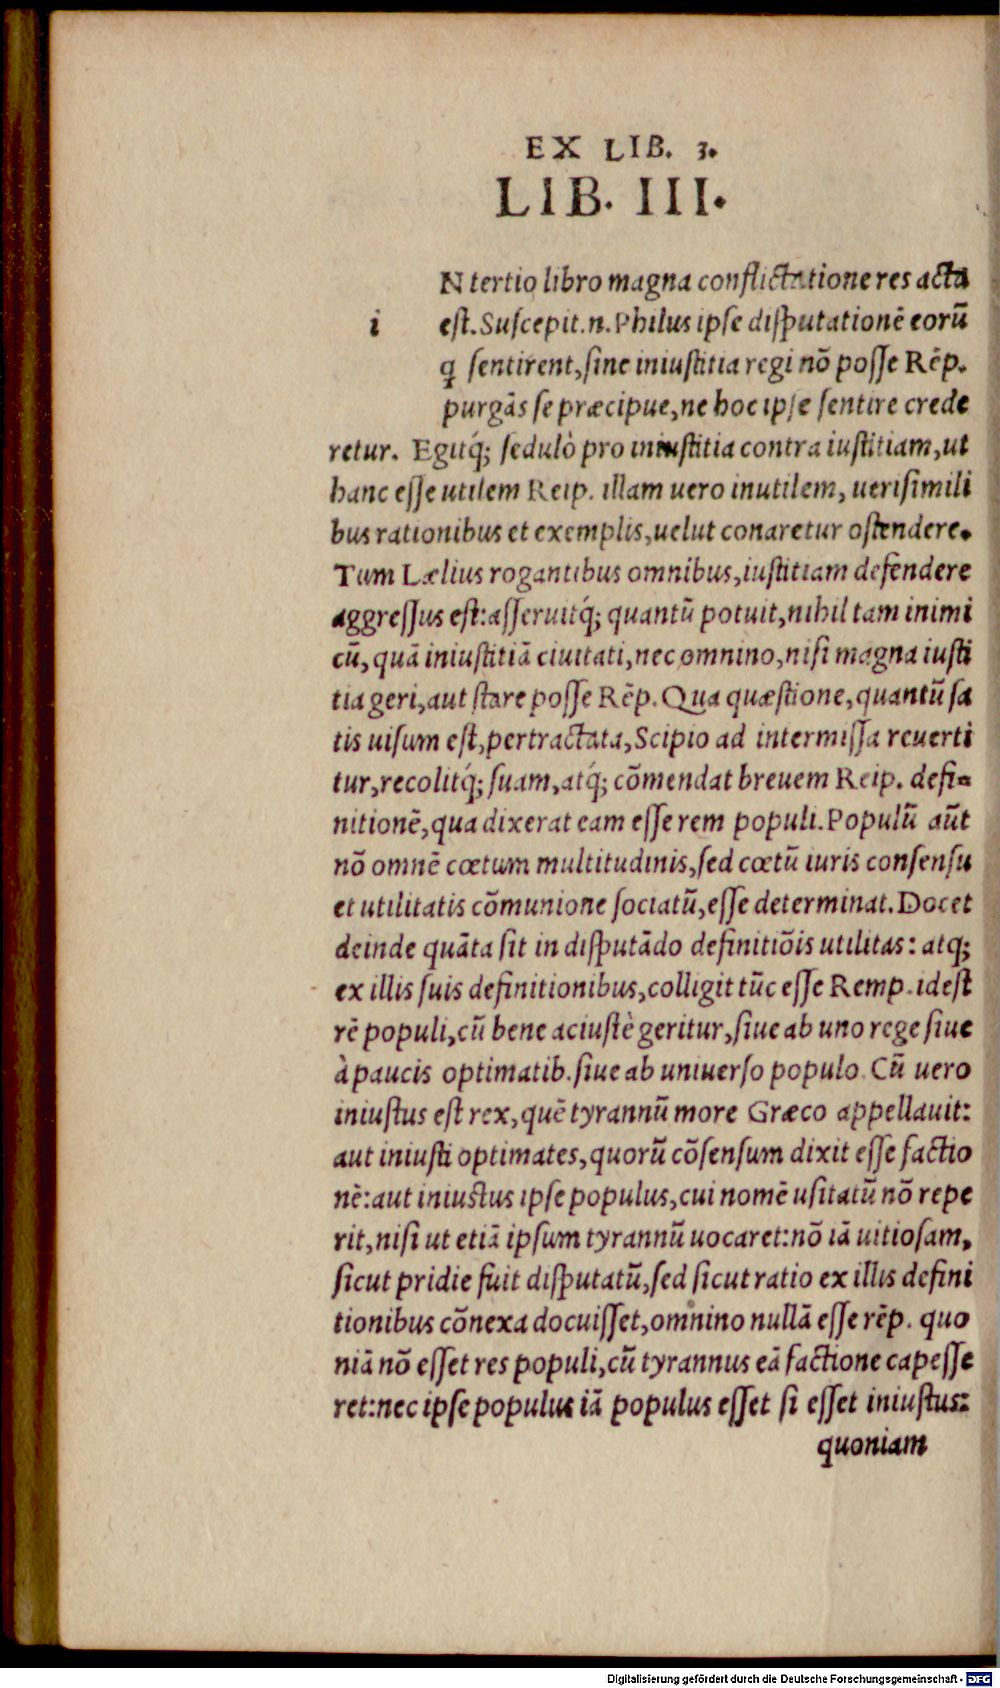 EX LIB. 3.
LIB. III.
i N tertio libro magna conflictatione res acta
est. Suscepit.n. Philus ipse disputationē eorū
q sentirent, sine iniustitia regi nō posse Rēp.
purgās se præcipue, ne hoc ipse sentire crede
retur. Egitq́; sedulò pro iniustitia contra iustitiam, ut
hanc esse utilem Reip. illam uero inutilem, uerisimili
bus rationibus et exemplis, uelut conaretur ostendere.
Tum Lælius rogantibus omnibus, iustitiam defendere
aggressus est: asseruitq́; quantū potuit, nihil tam inimi
cū, quā iniustitiā ciuitati, nec omnino, nisi magna iusti
tia geri, aut stare posse Rēp. Qua quæstione, quantū sa
tis uisum est, pertractata, Scipio ad intermissa reuerti
tur, recolitq́; suam, atq́; cōmendat breuem Reip. defi=
nitionē, qua dixerat eam esse rem populi. Populū aūt
nō omnē cœtum multitudinis, sed cœtū iuris consensu
et utilitatis cōmunione sociatū, esse determinat. Docet
deinde quāta sit in disputādo definitiōis utilitas: atq;
ex illis suis definitionibus, colligit tūc esse Remp. idest
rē populi, cū bene ac iustè geritur, siue ab uno rege siue
à paucis optimatib. siue ab uniuerso populo. Cū uero
iniustus est rex, quē tyrannū more Græco appellauit:
aut iniusti optimates, quorū cōsensum dixit esse factio
nē: aut iniustus ipse populus, cui nomē usitatū nō repe
rit, nisi ut etiā ipsum tyrannū uocaret: nō iā uitiosam,
sicut pridie fuit disputatū, sed sicut ratio ex illis defini
tionibus cōnexa docuisset, omnino nullā esse rēp. quo
niā nō esset res populi, cū tyrannus eā factione capesse
ret: nec ipse populus iā populus esset si esset iniustus:
quoniam
Digitalisierung gefördert durch die Deutsche Forschungsgemeinschaft - DFG